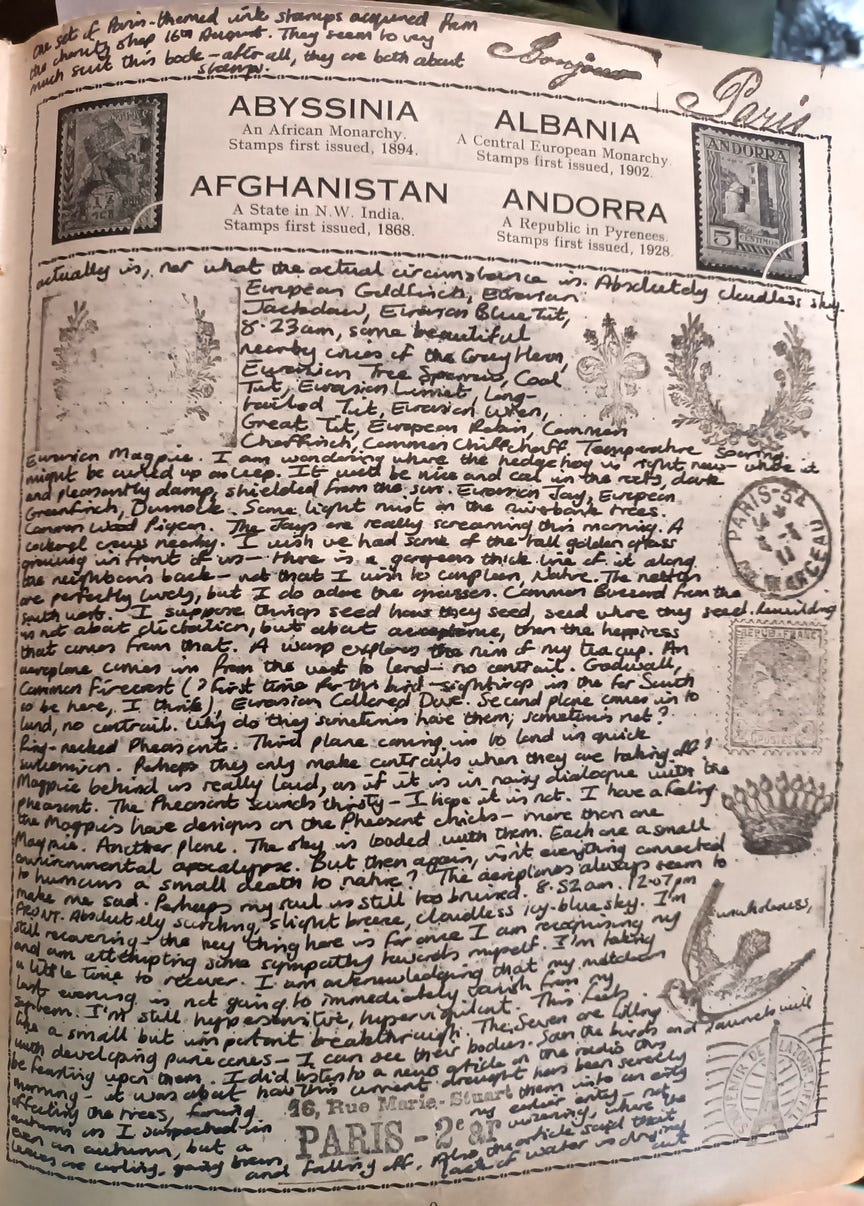 One set of Paris-themed ink stamps acquired from
the charity shop 16th August. They seem to very
much suit this book - after all, they are both about
stamps.
Bonjour
Paris
ABYSSINIA
An African Monarchy.
Stamps first issued, 1894.
ALBANIA
A Central European Monarchy.
Stamps first issued, 1902.
AFGHANISTAN
A State in N.W. India.
Stamps first issued, 1868.
ANDORRA
A Republic in Pyrenees.
Stamps first issued, 1928.
ANDORRA
5 CENTIMOS
actually is, not what the actual circumstance is. Absolutely cloudless sky.
European Goldfinch, Eurasian
Jackdaw, Eurasian Blue Tit,
8.23am, some beautiful
nearby cries of the Grey Heron,
Eurasian Tree Sparrow, Coal
Tit, Eurasian Linnet, Long-
tailed Tit, Eurasian Wren,
Great Tit, European Robin, Common
Chaffinch, Common Chiffchaff. Temperature soaring.
Eurasian Magpie. I am wondering where the hedgehog is right now - where it
might be curled up asleep. It will be nice and cool in the roots, dark
and pleasantly damp, shielded from the sun. Eurasian Jay, European
Greenfinch, Dunnock. Some light mist in the riverbank trees.
Common Wood Pigeon. The Jays are really screaming this morning. A
crows nearby. I wish we had some of the tall golden grass
growing in front of us - there is a gorgeous thick line of it along
the neighbours back - not that I wish to complain, Nature. The nettles
are perfectly lovely, but I do adore the grasses. Common Buzzard from the
south west. I suppose things seed how they seed, seed where they seed. Rewilding
is not about dictation, but about acceptance, then the happiness
that comes from that. A wasp explores the rim of my teacup. An
aeroplane comes in from the west to land - no contrail. Gadwall,
Common Firecrest (? First time for this bird - sightings in the far South
to be here, I think), Eurasian Collared Dove. Second plane comes in to
land, no contrail. Why do they sometimes have them, sometimes not?
Ring-necked Pheasant. Third plane coming in to land in quick
succession. Perhaps they only make contrails when they are taking off?
Magpie behind us really loud, as if it is in noisy dialogue with the
pheasant. The Pheasant sounds thirsty - I hope it is not. I have a feeling
the Magpies have designs on the Pheasant chicks - more than one
Magpie. Another plane. The sky is loaded with them. Each one a small
environmental apocalypse. But then again, isn't everything connected
to humans a small death to nature? The aeroplanes always seem to
make me sad. Perhaps my soul is still too bruised. 8.52am. 12.07pm
FRONT. Absolutely scorching, slight breeze, cloudless icy-blue sky. I'm
still recovering - the key thing here is for once I am recognising my unwholeness,
and am attempting some sympathy towards myself. I'm taking
a little time to recover. I am acknowledging that my meltdown
last evening is not going to immediately vanish from my
system. I'm still hypersensitive, hypervigilant. This feels
like a small but important breakthrough. The Seven are filling
with developing pine cones - I can see their bodies. Soon the birds and squirrels will
be feasting upon them. I did listen to a news article on the radio this
morning - it was about how this current drought has been severely
affecting the trees, forcing them into an early
autumn as I suspected in my earlier entry - not
even an autumn, but a where the
leaves are curling, going brown and falling off. Also, the article said that
lack of water is drying out
PARIS-54
REPUB. FRANC.
POSTES
SOUVENIR DE LA TOUR EIFFEL
16, Rue Marie-Stuart
PARIS - 2e ar